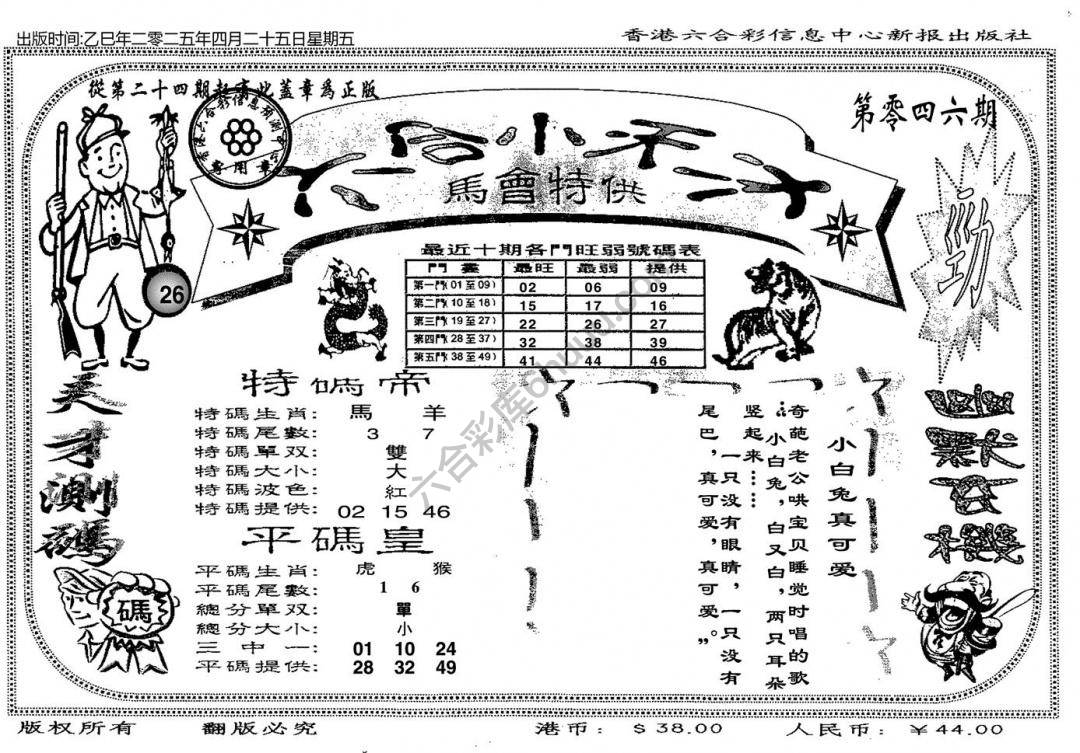 出版时间:乙巳年二零二五年四月二十五日星期五
香港六合彩信息中心新报出版社
從第二十四期起有此蓋章爲正版
第零四六期
專用章
馬會特供
26
勁
最近十期各門旺弱號碼表
門畫 最旺 最弱 提供
第一門(01至09) 02 06 09
第二門(10至18) 15 17 16
第三門(19至27) 22 26 27
第四門(28至37) 32 38 39
第五門(38至49) 41 44 46
天才測碼
碼
特碼帝
特碼生肖: 馬 羊
特碼尾數: 3 7
特碼單双: 雙
特碼大小: 大
特碼波色: 紅
特碼提供: 02 15 46
平碼皇
平碼生肖: 虎 猴
平碼尾數: 1 6
總分單双: 單
總分大小: 小
三中一: 01 10 24
平碼提供: 28 32 49
小白兔真可爱
奇葩老公哄宝贝睡觉时唱的歌
:“小白兔,白又白,两只耳朵
竖起来……
一只没有眼睛,一只没有
尾巴,真可爱,真可爱。”
六合彩库6huuu.com
版权所有
翻版必究
港币: $38.00
人民币: ¥44.00